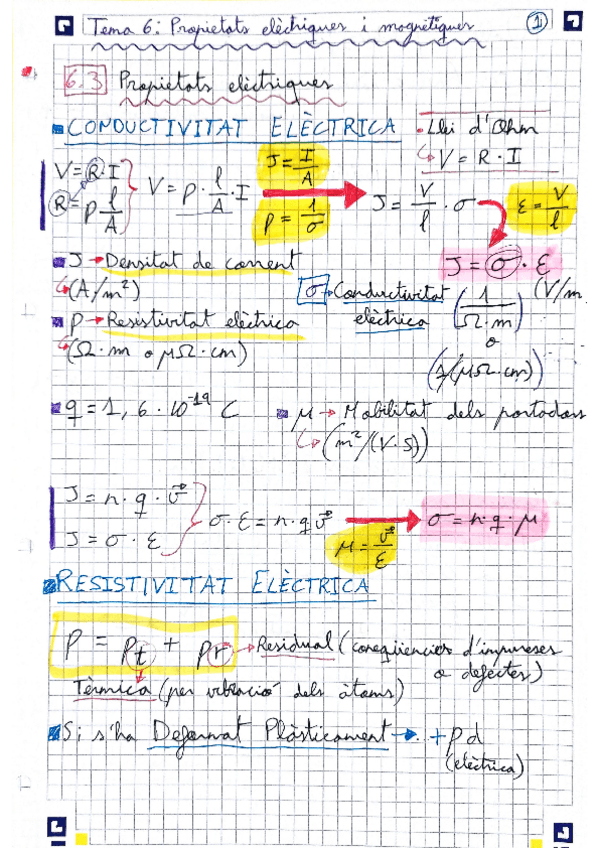 Tema 6: Propietats elèctriques i magnètiques 1
6.3 Propietats elèctriques
CONDUCTIVITAT ELÈCTRICA
Llei d'Ohm
V = R · I
V = R · I
R = ρ l/A
V = ρ · l/A · I
J = I/A
ρ = 1/σ
J = V/l · σ
ε = V/l
J = σ · ε
J → Densitat de corrent
(A/m²)
σ → Conductivitat elèctrica (1/Ω·m) (V/m
o
(1/(μΩ·cm))
ρ → Resistivitat elèctrica
(Ω·m o μΩ·cm)
q = 1,6 · 10⁻¹⁹ C
μ → Mobilitat dels portadors
(m²/(V·S))
J = n · q · v⃗
J = σ · ε
σ · ε = n · q v⃗
μ = v⃗/ε
σ = n · q · μ
RESISTIVITAT ELÈCTRICA
ρ = ρt + ρr → Residual (coneqüències d'impureses
o defectes)
Tèrmica (per vibració dels àtoms)
Si s'ha Deformat Plàsticament → + ρd
(elèctrica)